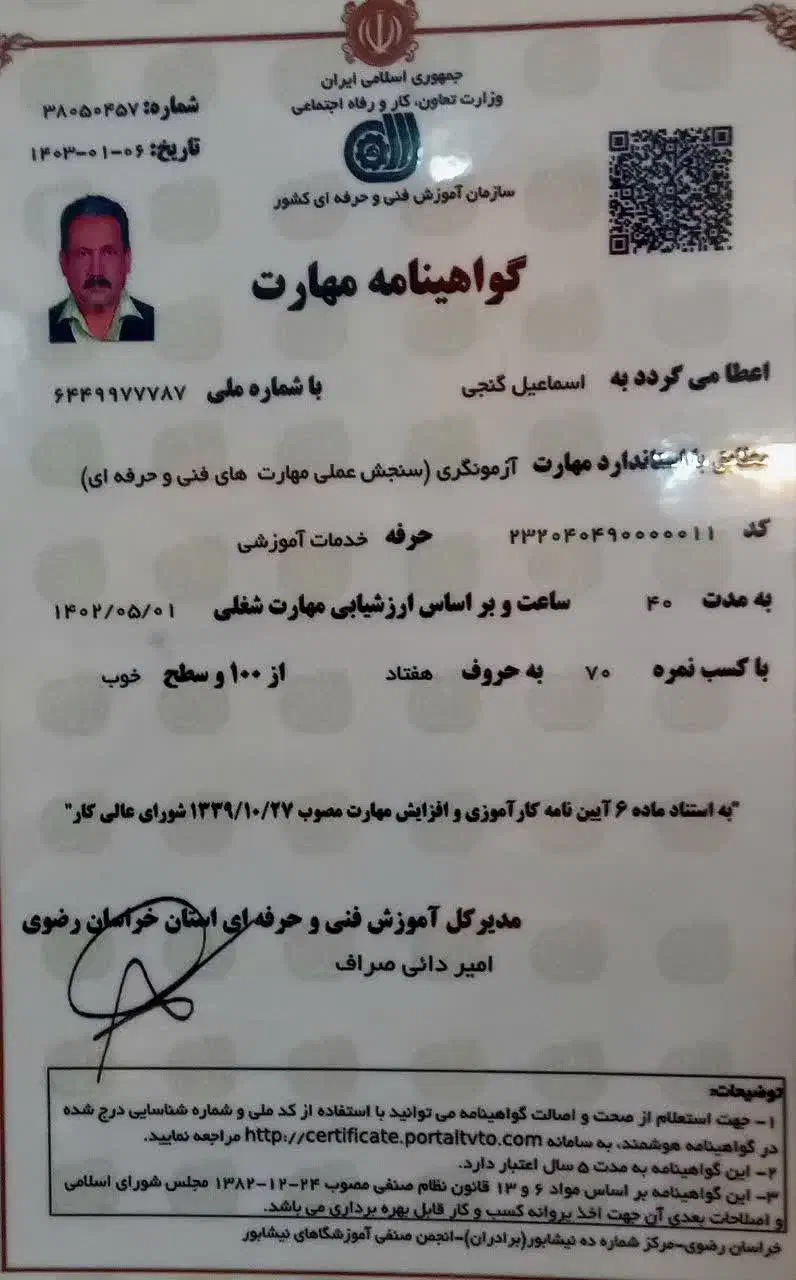 جمهوری اسلامی ایران
وزارت تعاون، کار و رفاه اجتماعی
سازمان آموزش فنی و حرفه ای کشور
شماره: ۳۸۰۵۰۴۵۷
تاریخ: ۱۴۰۳-۰۱-۰۶
گواهینامه مهارت
اعطا می گردد به اسماعیل گنجی با شماره ملی ۶۴۴۹۹۷۷۷۸۷
مطابق با استاندارد مهارت آزمونگری (سنجش عملی مهارت های فنی و حرفه ای)
کد ۲۳۲۰۴۰۴۹۰۰۰۰۰۱۱ حرفه خدمات آموزشی
به مدت ۴۰ ساعت و بر اساس ارزشیابی مهارت شغلی ۱۴۰۲/۰۵/۰۱
با کسب نمره ۷۰ به حروف هفتاد از ۱۰۰ و سطح خوب
"به استناد ماده ۶ آیین نامه کارآموزی و افزایش مهارت مصوب ۱۳۳۹/۱۰/۲۷ شورای عالی کار"
مدیرکل آموزش فنی و حرفه ای استان خراسان رضوی
امیر دائی صراف
توضیحات:
۱- جهت استعلام از صحت و اصالت گواهینامه می توانید با استفاده از کد ملی و شماره شناسایی درج شده
در گواهینامه هوشمند، به سامانه http://certificate.portaltvto.com مراجعه نمایید.
۲- این گواهینامه به مدت ۵ سال اعتبار دارد.
۳- این گواهینامه بر اساس مواد ۶ و ۱۳ قانون نظام صنفی مصوب ۲۴-۱۲-۱۳۸۲ مجلس شورای اسلامی
و اصلاحات بعدی آن جهت اخذ پروانه کسب و کار قابل بهره برداری می باشد.
خراسان رضوی-مرکز شماره ده نیشابور(برادران)-انجمن صنفی آموزشگاهای نیشابور